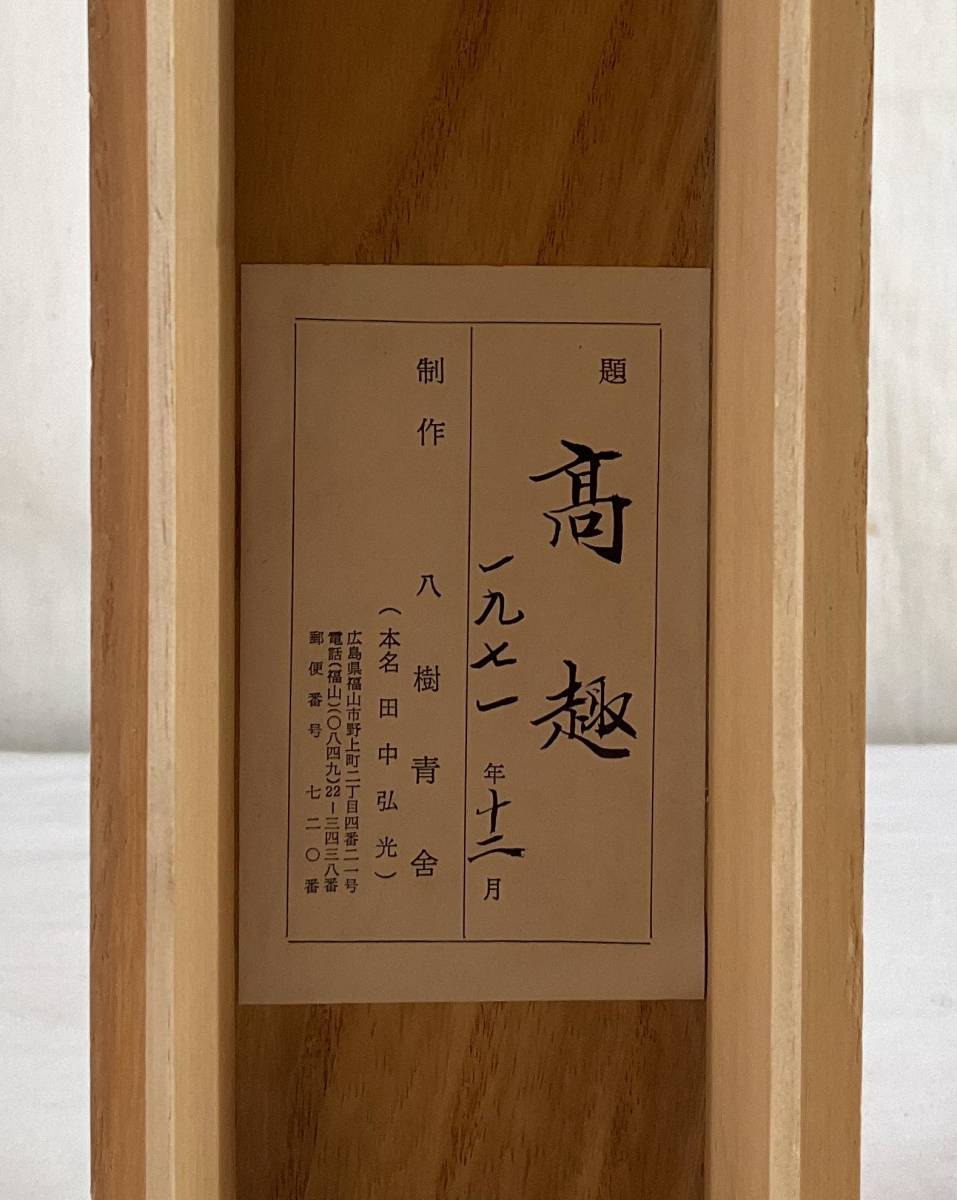 題 髙趣
一九七一年十二月
制作 八樹青舍
(本名 田中弘光)
広島県福山市野上町二丁目四番二一号
電話(福山)(〇八四九)22―三四三八番
郵便番号 七二〇番